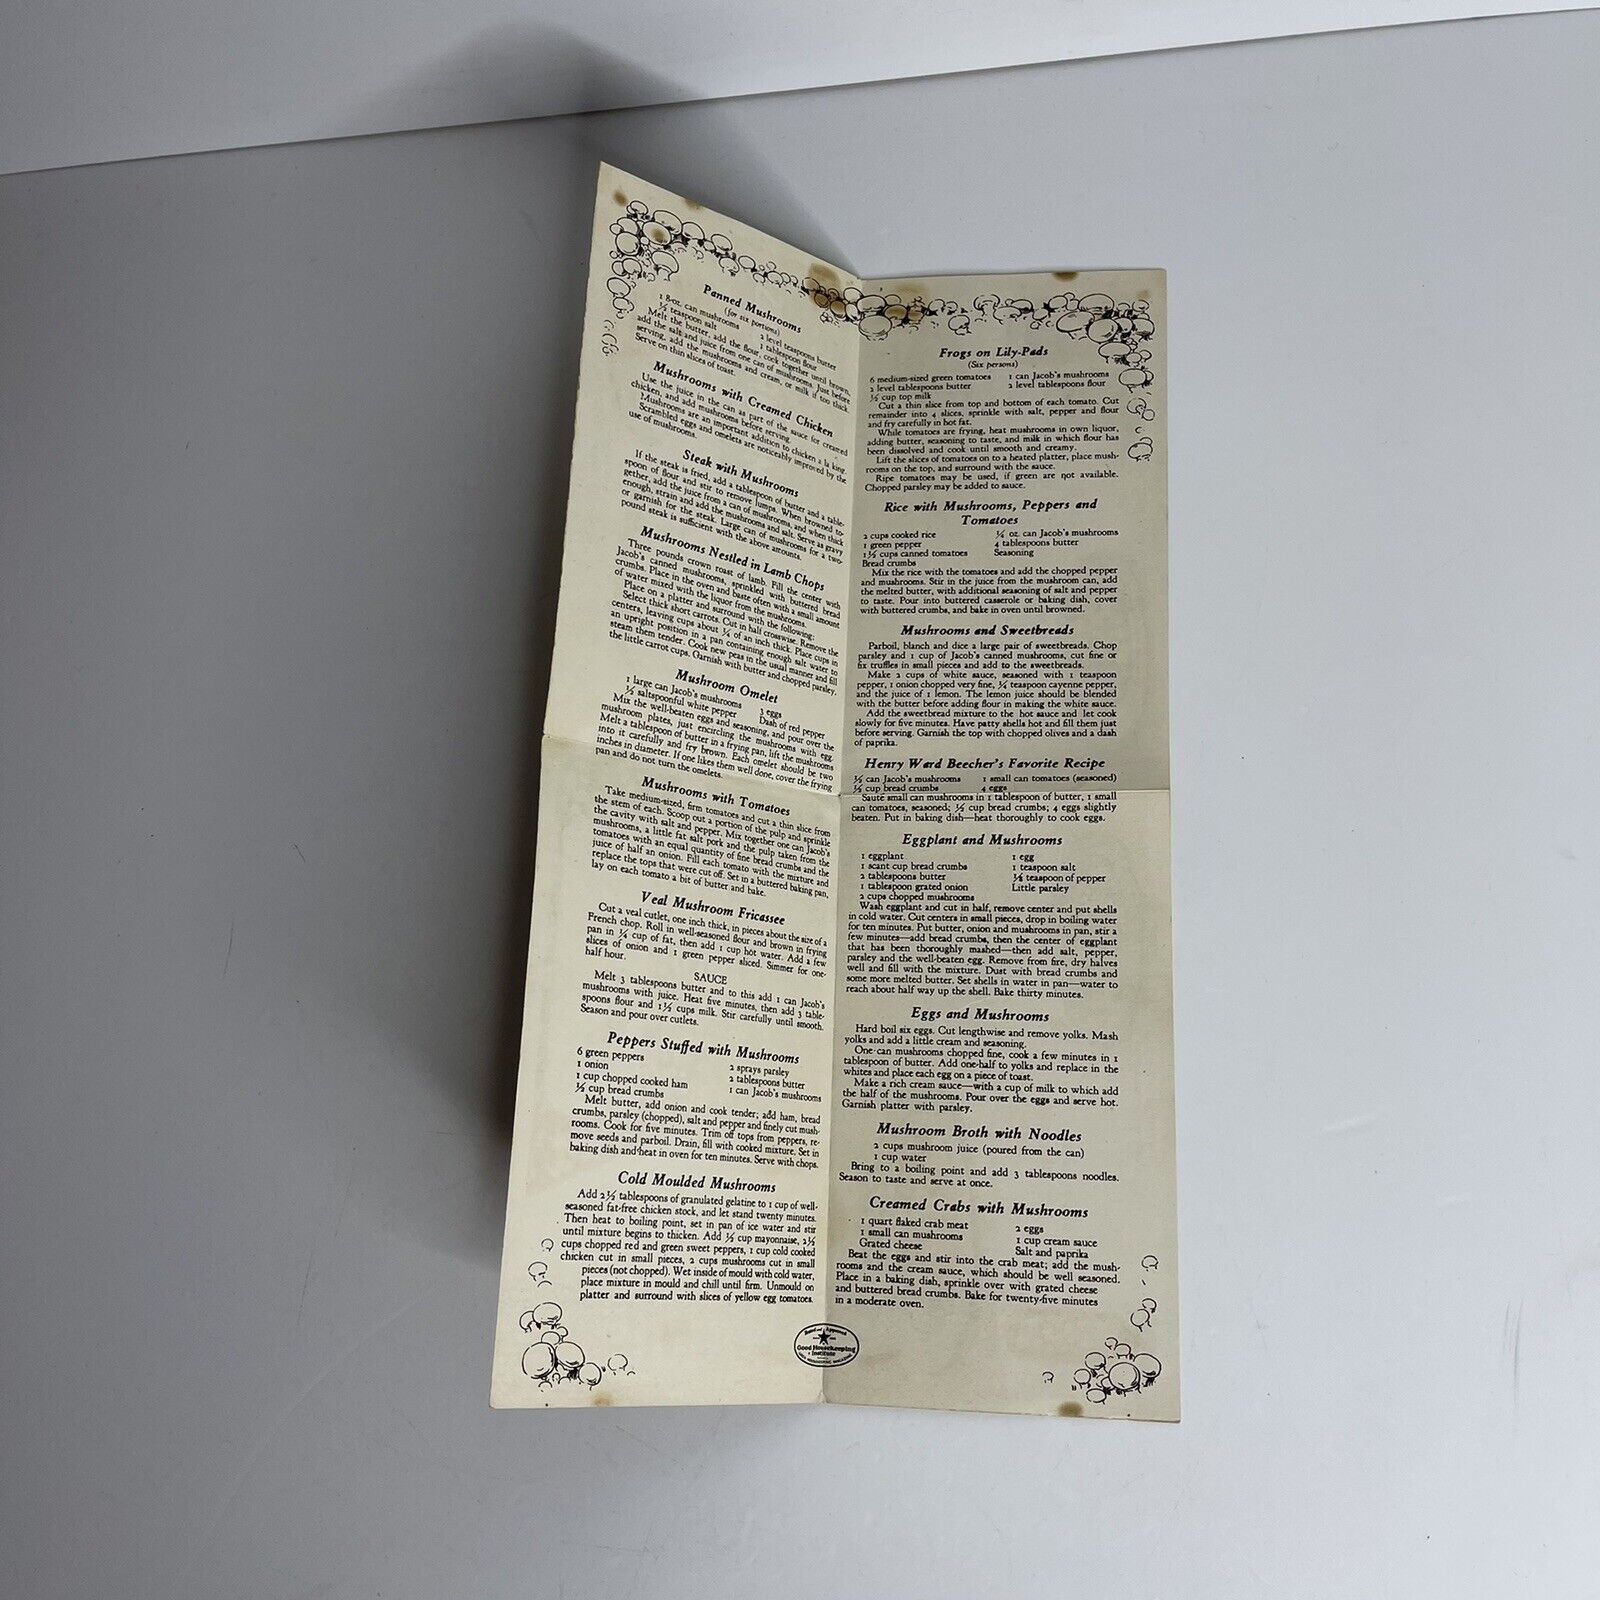 Panned Mushrooms
(for six portions)
1 8-oz. can mushrooms 2 level teaspoons butter
½ teaspoon salt 1 tablespoon flour
Melt the butter, add the flour, cook together until brown,
add the salt and juice from one can of mushrooms. Just before
serving, add the mushrooms and cream, or milk if too thick.
Serve on thin slices of toast.
Mushrooms with Creamed Chicken
Use the juice in the can as part of the sauce for creamed
chicken, and add mushrooms before serving.
Mushrooms are an important addition to chicken a la king.
Scrambled eggs and omelets are noticeably improved by the
use of mushrooms.
Steak with Mushrooms
If the steak is fried, add a tablespoon of butter and a table-
spoon of flour and stir to remove lumps. When browned to-
gether, add the juice from a can of mushrooms, and when thick
enough, strain and add the mushrooms and salt. Serve as gravy
or garnish for the steak. Large can of mushrooms for a two-
pound steak is sufficient with the above amounts.
Mushrooms Nestled in Lamb Chops
Three pounds crown roast of lamb. Fill the center with
Jacob's canned mushrooms, sprinkled with buttered bread
crumbs. Place in the oven and baste often with a small amount
of water mixed with the liquor from the mushrooms.
Place on a platter and surround with the following:
Select thick short carrots. Cut in half crosswise. Remove the
centers, leaving cups about ¼ of an inch thick. Place cups in
an upright position in a pan containing enough salt water to
steam them tender. Cook new peas in the usual manner and fill
the little carrot cups. Garnish with butter and chopped parsley.
Mushroom Omelet
1 large can Jacob's mushrooms 3 eggs
½ saltspoonful white pepper Dash of red pepper
Mix the well-beaten eggs and seasoning, and pour over the
mushroom plates, just encircling the mushrooms with egg.
Melt a tablespoon of butter in a frying pan, lift the mushrooms
into it carefully and fry brown. Each omelet should be two
inches in diameter. If one likes them well done, cover the frying
pan and do not turn the omelets.
Mushrooms with Tomatoes
Take medium-sized, firm tomatoes and cut a thin slice from
the stem of each. Scoop out a portion of the pulp and sprinkle
the cavity with salt and pepper. Mix together one can Jacob's
mushrooms, a little fat salt pork and the pulp taken from the
tomatoes with an equal quantity of fine bread crumbs and the
juice of half an onion. Fill each tomato with the mixture and
replace the tops that were cut off. Set in a buttered baking pan,
lay on each tomato a bit of butter and bake.
Veal Mushroom Fricassee
Cut a veal cutlet, one inch thick, in pieces about the size of a
French chop. Roll in well-seasoned flour and brown in frying
pan in ¼ cup of fat, then add 1 cup hot water. Add a few
slices of onion and 1 green pepper sliced. Simmer for one-
half hour.
SAUCE
Melt 3 tablespoons butter and to this add 1 can Jacob's
mushrooms with juice. Heat five minutes, then add 3 table-
spoons flour and 1½ cups milk. Stir carefully until smooth.
Season and pour over cutlets.
Peppers Stuffed with Mushrooms
6 green peppers 2 sprays parsley
1 onion 2 tablespoons butter
1 cup chopped cooked ham 1 can Jacob's mushrooms
½ cup bread crumbs
Melt butter, add onion and cook tender; add ham, bread
crumbs, parsley (chopped), salt and pepper and finely cut mush-
rooms. Cook for five minutes. Trim off tops from peppers, re-
move seeds and parboil. Drain, fill with cooked mixture. Set in
baking dish and heat in oven for ten minutes. Serve with chops.
Cold Moulded Mushrooms
Add 2½ tablespoons of granulated gelatine to 1 cup of well-
seasoned fat-free chicken stock, and let stand twenty minutes.
Then heat to boiling point, set in pan of ice water and stir
until mixture begins to thicken. Add ½ cup mayonnaise, 2½
cups chopped red and green sweet peppers, 1 cup cold cooked
chicken cut in small pieces, 2 cups mushrooms cut in small
pieces (not chopped). Wet inside of mould with cold water,
place mixture in mould and chill until firm. Unmould on
platter and surround with slices of yellow egg tomatoes.
Frogs on Lily-Pads
(Six persons)
6 medium-sized green tomatoes 1 can Jacob's mushrooms
2 level tablespoons butter 2 level tablespoons flour
½ cup top milk
Cut a thin slice from top and bottom of each tomato. Cut
remainder into 4 slices, sprinkle with salt, pepper and flour
and fry carefully in hot fat.
While tomatoes are frying, heat mushrooms in own liquor,
adding butter, seasoning to taste, and milk in which flour has
been dissolved and cook until smooth and creamy.
Lift the slices of tomatoes on to a heated platter, place mush-
rooms on the top, and surround with the sauce.
Ripe tomatoes may be used, if green are not available.
Chopped parsley may be added to sauce.
Rice with Mushrooms, Peppers and
Tomatoes
2 cups cooked rice ¼ oz. can Jacob's mushrooms
1 green pepper 4 tablespoons butter
1½ cups canned tomatoes Seasoning
Bread crumbs
Mix the rice with the tomatoes and add the chopped pepper
and mushrooms. Stir in the juice from the mushroom can, add
the melted butter, with additional seasoning of salt and pepper
to taste. Pour into buttered casserole or baking dish, cover
with buttered crumbs, and bake in oven until browned.
Mushrooms and Sweetbreads
Parboil, blanch and dice a large pair of sweetbreads. Chop
parsley and 1 cup of Jacob's canned mushrooms, cut fine or
fix truffles in small pieces and add to the sweetbreads.
Make 2 cups of white sauce, seasoned with 1 teaspoon
pepper, 1 onion chopped very fine, ¼ teaspoon cayenne pepper,
and the juice of 1 lemon. The lemon juice should be blended
with the butter before adding flour in making the white sauce.
Add the sweetbread mixture to the hot sauce and let cook
slowly for five minutes. Have patty shells hot and fill them just
before serving. Garnish the top with chopped olives and a dash
of paprika.
Henry Ward Beecher's Favorite Recipe
½ can Jacob's mushrooms 1 small can tomatoes (seasoned)
½ cup bread crumbs 4 eggs
Sauté small can mushrooms in 1 tablespoon of butter, 1 small
can tomatoes, seasoned; ½ cup bread crumbs; 4 eggs slightly
beaten. Put in baking dish—heat thoroughly to cook eggs.
Eggplant and Mushrooms
1 eggplant 1 egg
1 scant cup bread crumbs 1 teaspoon salt
2 tablespoons butter ⅛ teaspoon of pepper
1 tablespoon grated onion Little parsley
2 cups chopped mushrooms
Wash eggplant and cut in half, remove center and put shells
in cold water. Cut centers in small pieces, drop in boiling water
for ten minutes. Put butter, onion and mushrooms in pan, stir a
few minutes—add bread crumbs, then the center of eggplant
that has been thoroughly mashed—then add salt, pepper,
parsley and the well-beaten egg. Remove from fire, dry halves
well and fill with the mixture. Dust with bread crumbs and
some more melted butter. Set shells in water in pan—water to
reach about half way up the shell. Bake thirty minutes.
Eggs and Mushrooms
Hard boil six eggs. Cut lengthwise and remove yolks. Mash
yolks and add a little cream and seasoning.
One can mushrooms chopped fine, cook a few minutes in 1
tablespoon of butter. Add one-half to yolks and replace in the
whites and place each egg on a piece of toast.
Make a rich cream sauce—with a cup of milk to which add
the half of the mushrooms. Pour over the eggs and serve hot.
Garnish platter with parsley.
Mushroom Broth with Noodles
2 cups mushroom juice (poured from the can)
1 cup water
Bring to a boiling point and add 3 tablespoons noodles.
Season to taste and serve at once.
Creamed Crabs with Mushrooms
1 quart flaked crab meat 2 eggs
1 small can mushrooms 1 cup cream sauce
Grated cheese Salt and paprika
Beat the eggs and stir into the crab meat; add the mush-
rooms and the cream sauce, which should be well seasoned.
Place in a baking dish, sprinkle over with grated cheese
and buttered bread crumbs. Bake for twenty-five minutes
in a moderate oven.
Tested and Approved
Good Housekeeping
Institute